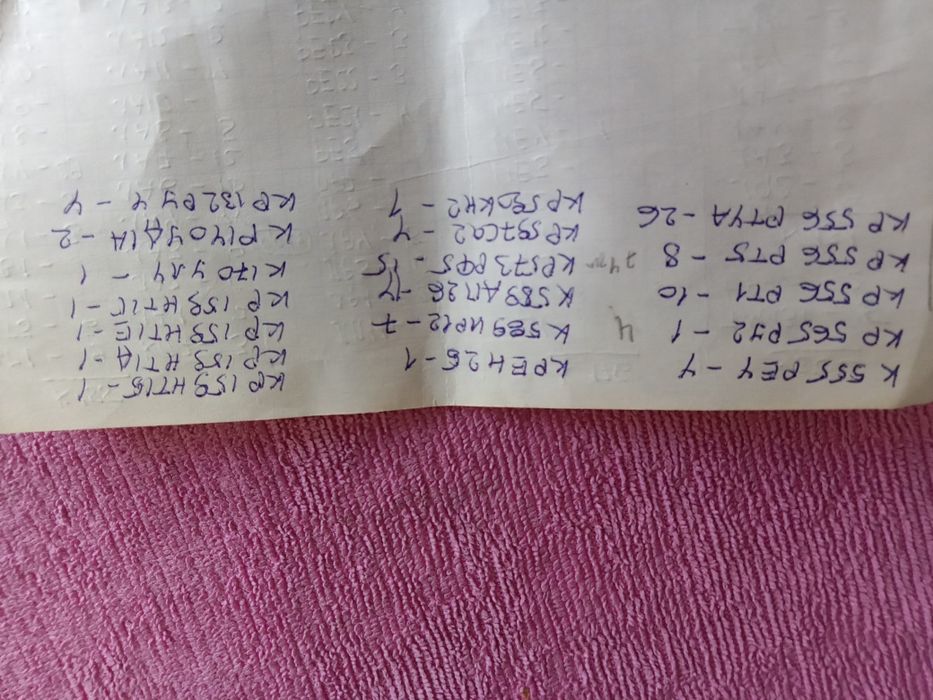 К 555 РЕ4 - 4
КР 565 РУ2 - 1 4
КР 556 РТ1 - 10
КР 556 РТ5 - 8
КР 556 РТ4А - 26
КРЕН2Б - 1
К589ИР12 - 7
К589АП26 - 14
КР573РФ5 - 15
КР597СА2 - 4
КР590КН2 - 1
КР159НТ1Б - 1
КР159НТ1А - 1
КР159НТ1Е - 1
КР159НТ1Г - 1
К170УЛ4 - 1
КР140УД1А - 2
КР132РУ4 - 4